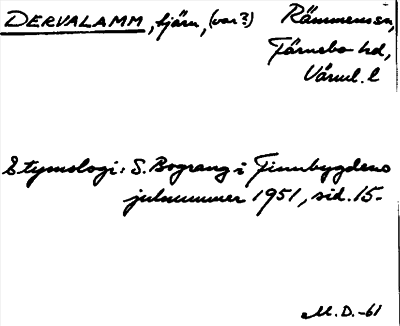 DERVALAMM, tjärn, (var?) Rämmens sn,
Färnebo hd,
Värml. l
Etymologi: S. Bograng i Finnbygdens
julnummer 1951, sid. 15.
M. D. -61